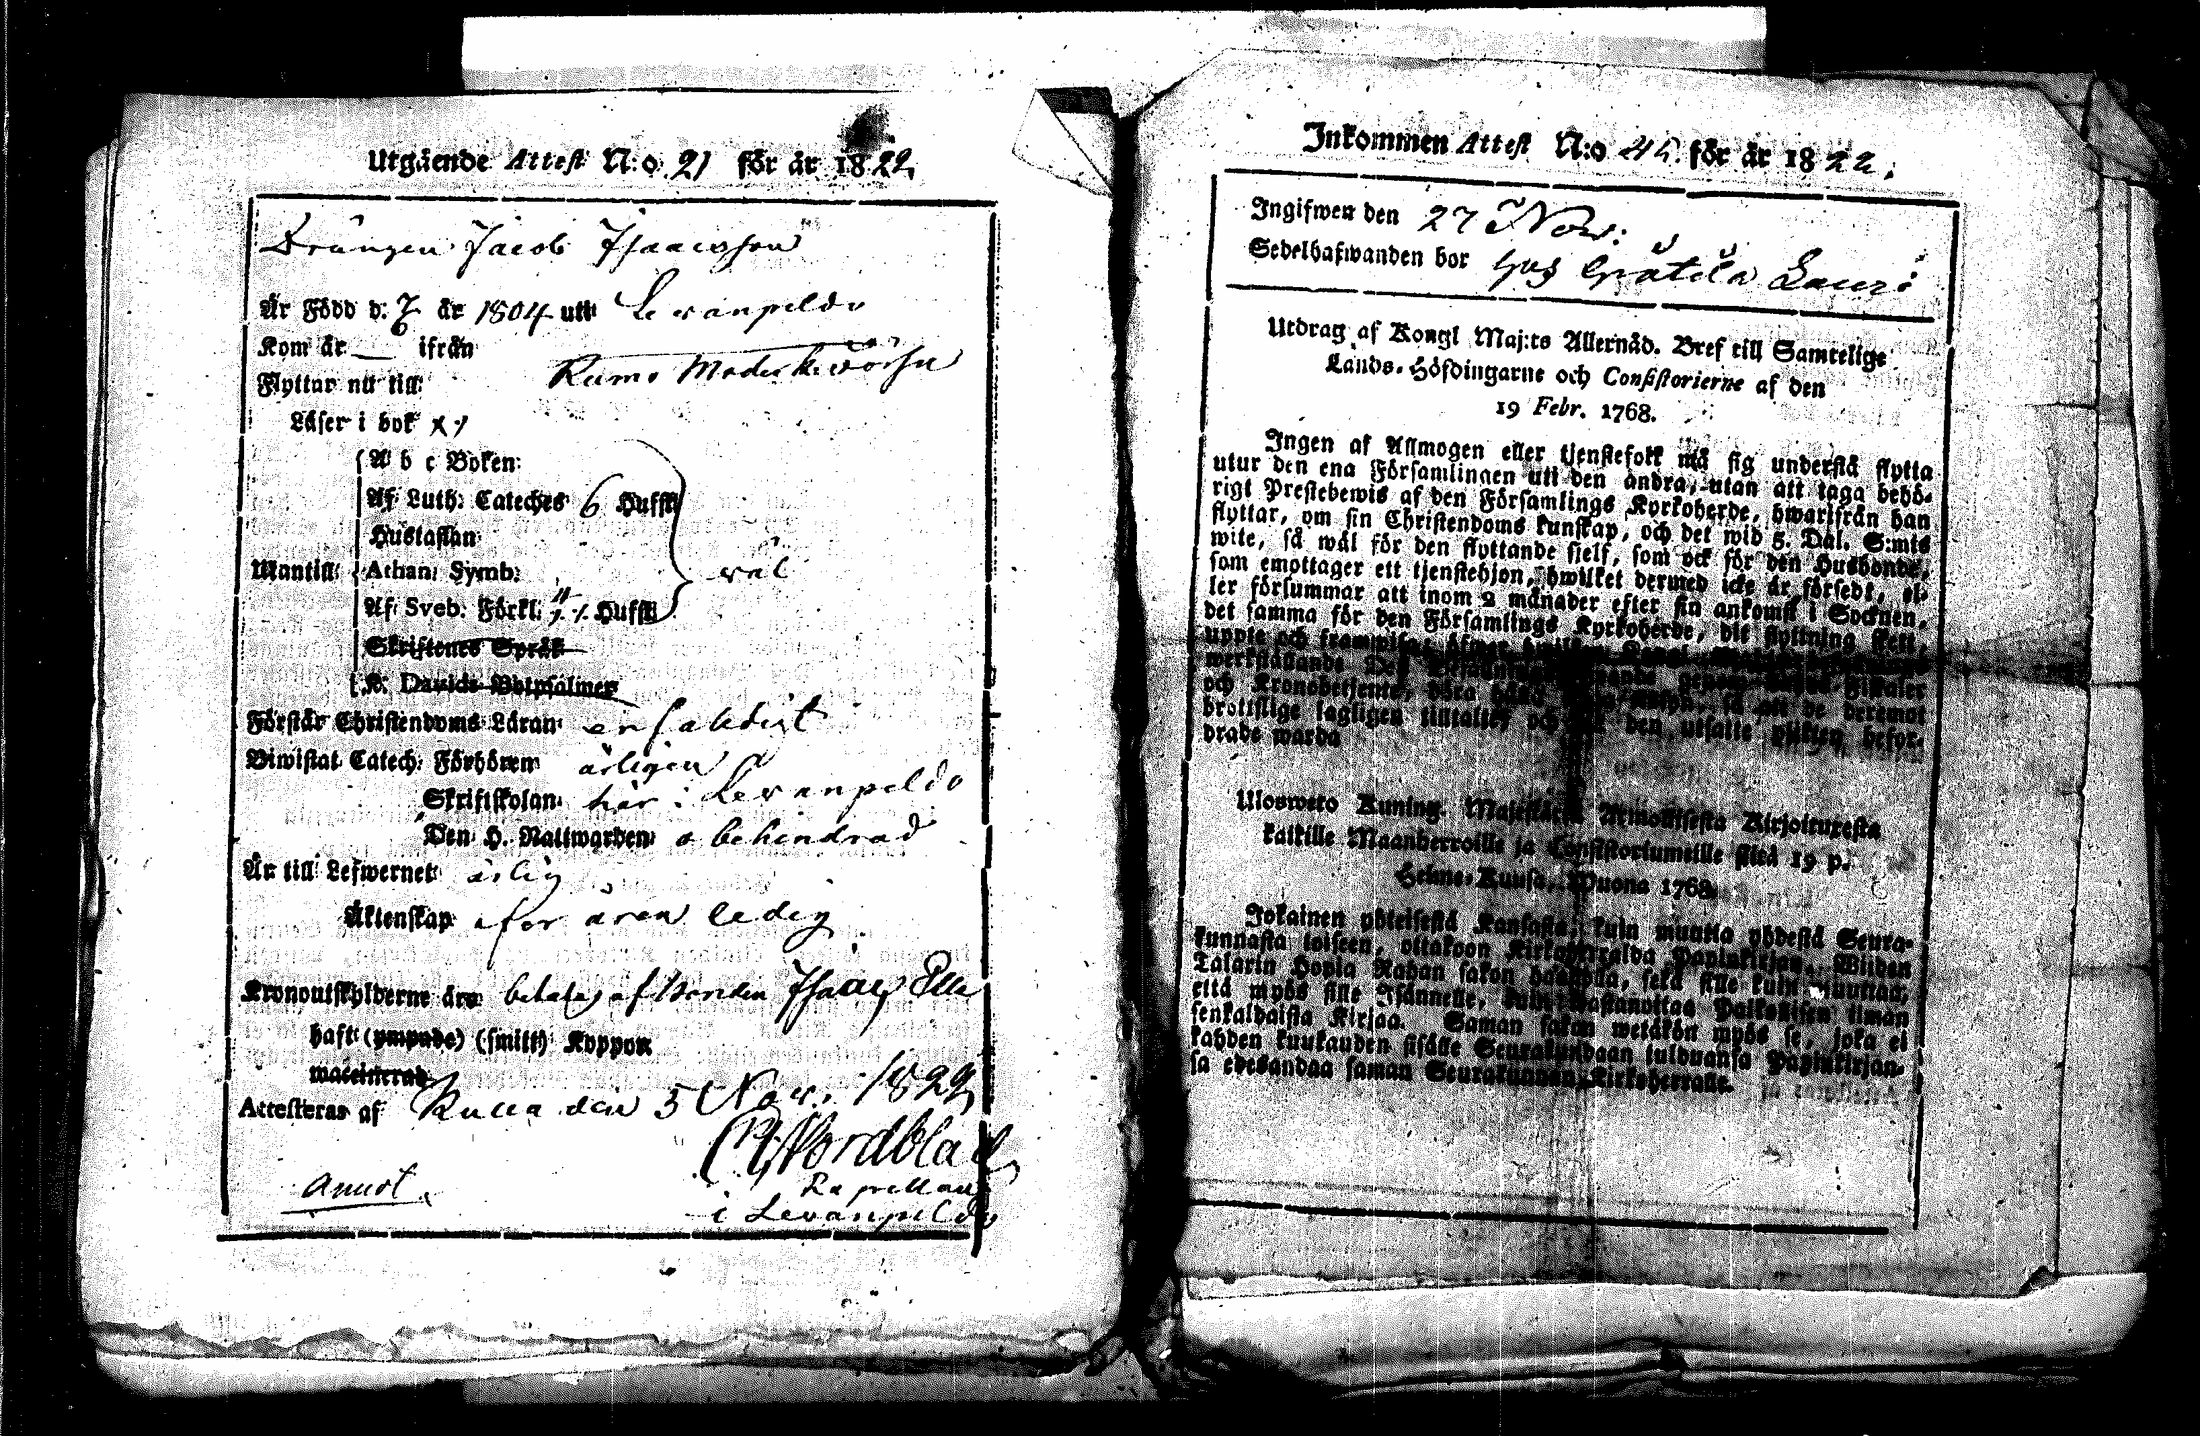 Utgående Attest N:o 21 för år 1822
Drängen Jacob Isaacsson
Är Född d. 7/6 år 1804 uti Levanpeldo
Kom år ifrån
Flyttar nu till
Kumo Moderkyrka
Läser i bok x./
A b c Boken:
Af Luth: Cateches 6 Hufst
Hustaflan
Mantill: Athan: Symb: väl
Af Sveb: Förkl: Hufst
Skriftenes Språk
K: Davids Botpsalmer
Förstår Christendoms Läran enfaldigt
Biwistat Catech: Förhören årligen
Skriftskolan här i Levanpeldo
Den H. Nattwarden obehindrad
Är till Lefwernet ärlig
Äktenskap ledig
Kronoutskylderne äro betalas af Isaac
haft (ympade) (smitt) Koppor
waccinerad
Attesteras af den 5 Nov. 1822
Nordblad
Kapellan
i Levanpeldo
Inkommen Attest N:o 45 för år 1822.
Ingifwen den 27 Nov:
Sedelhafwanden bor hos Lauri
Utdrag af Kongl Maj:ts Allernåd. Bref till Samtelige
Lands-Höfdingarne och Consistorierne af den
19 Febr. 1768.
Ingen af Allmogen eller tjenstefolk må sig understå flytta
utur den ena Församlingen uti den andra, utan att taga behö-
rigt Prestebewis af den Församlings Kyrkoherde, hwarifrån han
flyttar, om sin Christendoms kunskap, och det wid 5. Dal. S:mts
wite, så wäl för den flyttande sjelf, som ock för den Husbonde,
som emottager ett tjenstehjon, hwilket dermed icke är försedt, el-
ler försummar att inom 2 månader efter sin ankomst i Socknen,
det samma för den Församlings Kyrkoherde, dit flyttning skett,
uppte och framwisa,
werkställande Fiskaler
och Kronobetjente, så att de deremot
brottslige lagligen tilltalas och den utsatte plikten befor-
drade warda
Uloswetto Kuning. Majestätin Armollisesta Kirjoituxesta
kaikille Maanherroille ja Consistoriumeille siitä 19 p.
Helme-Kuusa, Wuona 1768.
Jokainen yhteisestä Kansasta, kuin muutta yhdestä Seura-
kunnasta toiseen, ottakoon Kirkoherralda Papinkirjan, Wijden
Talarin Hopia Rahan sakon haastolla, sekä sille kuin muuttaa,
että myös sille Isännelle, kuin wastanottaa Palkollisen ilman
senkaldaista Kirjaa. Saman sakon wetäkön myös se, joka ei
kahden kuukauden sisälle Seurakundaan tulduansa Papinkirjan-
sa edesandaa saman Seurakunnan Kirkoherralle.